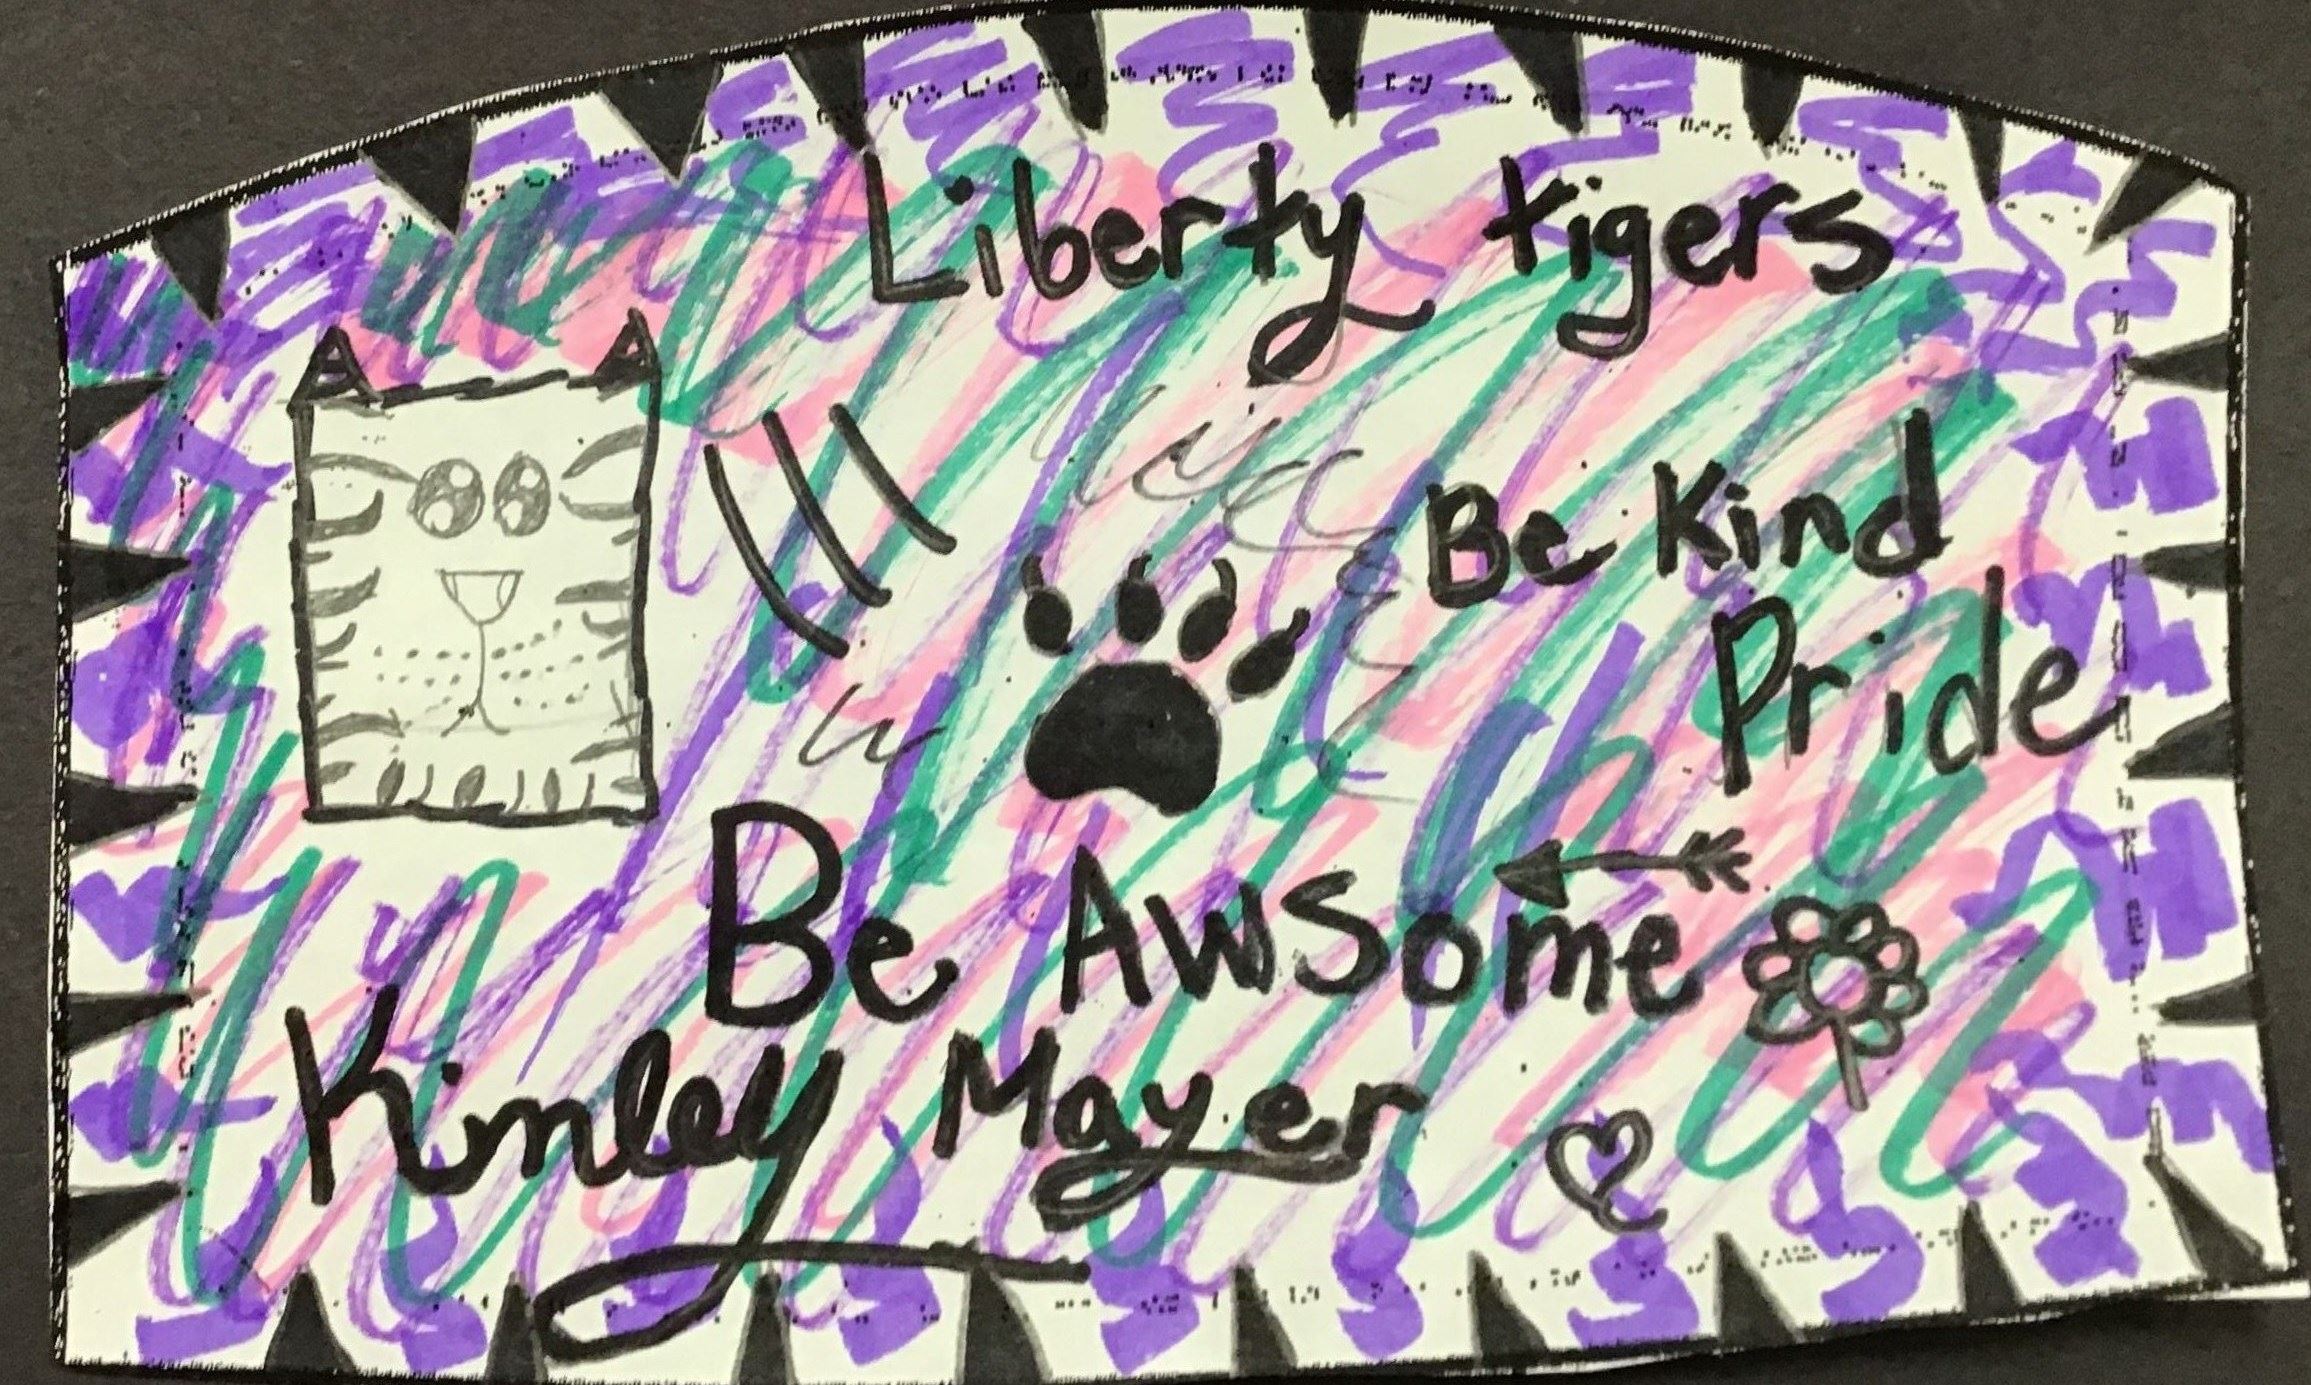 Liberty tigers
Be Kind
Pride
Be Awsome
Kinley Mayer